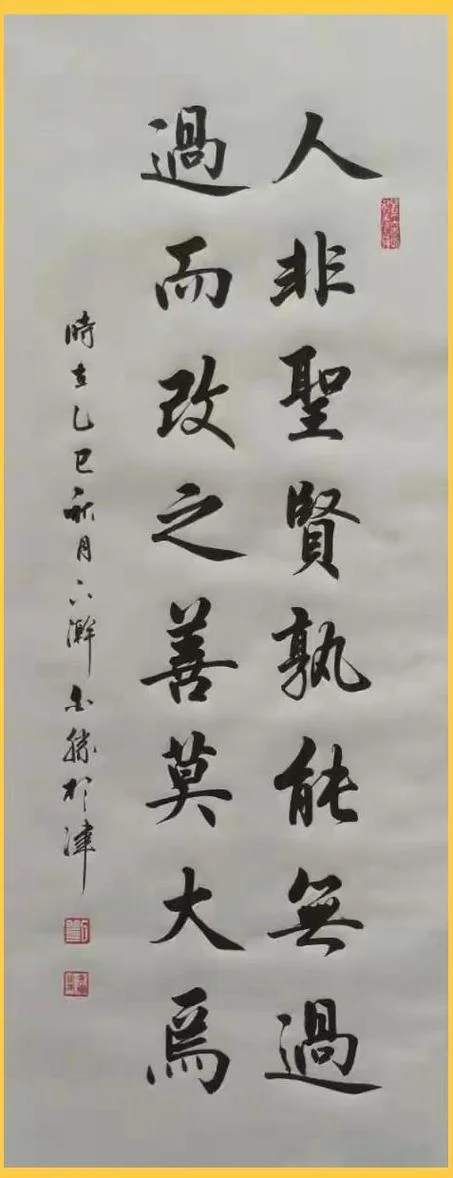 人非聖賢孰能無過
過而改之善莫大焉
時在乙巳秋月下澣 於津